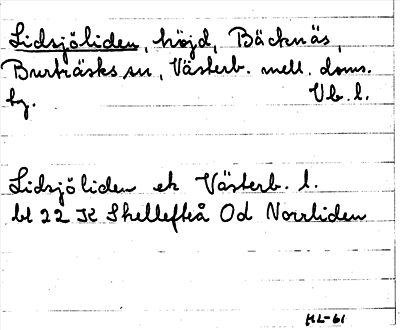 Lidsjöliden, höjd, Bäcknäs,
Burträsks sn, Västerb. mell. doms.
hg. Vb. l.
Lidsjöliden ek Västerb. l.
bl 22 K Skellefteå Od Norrliden
HL-61